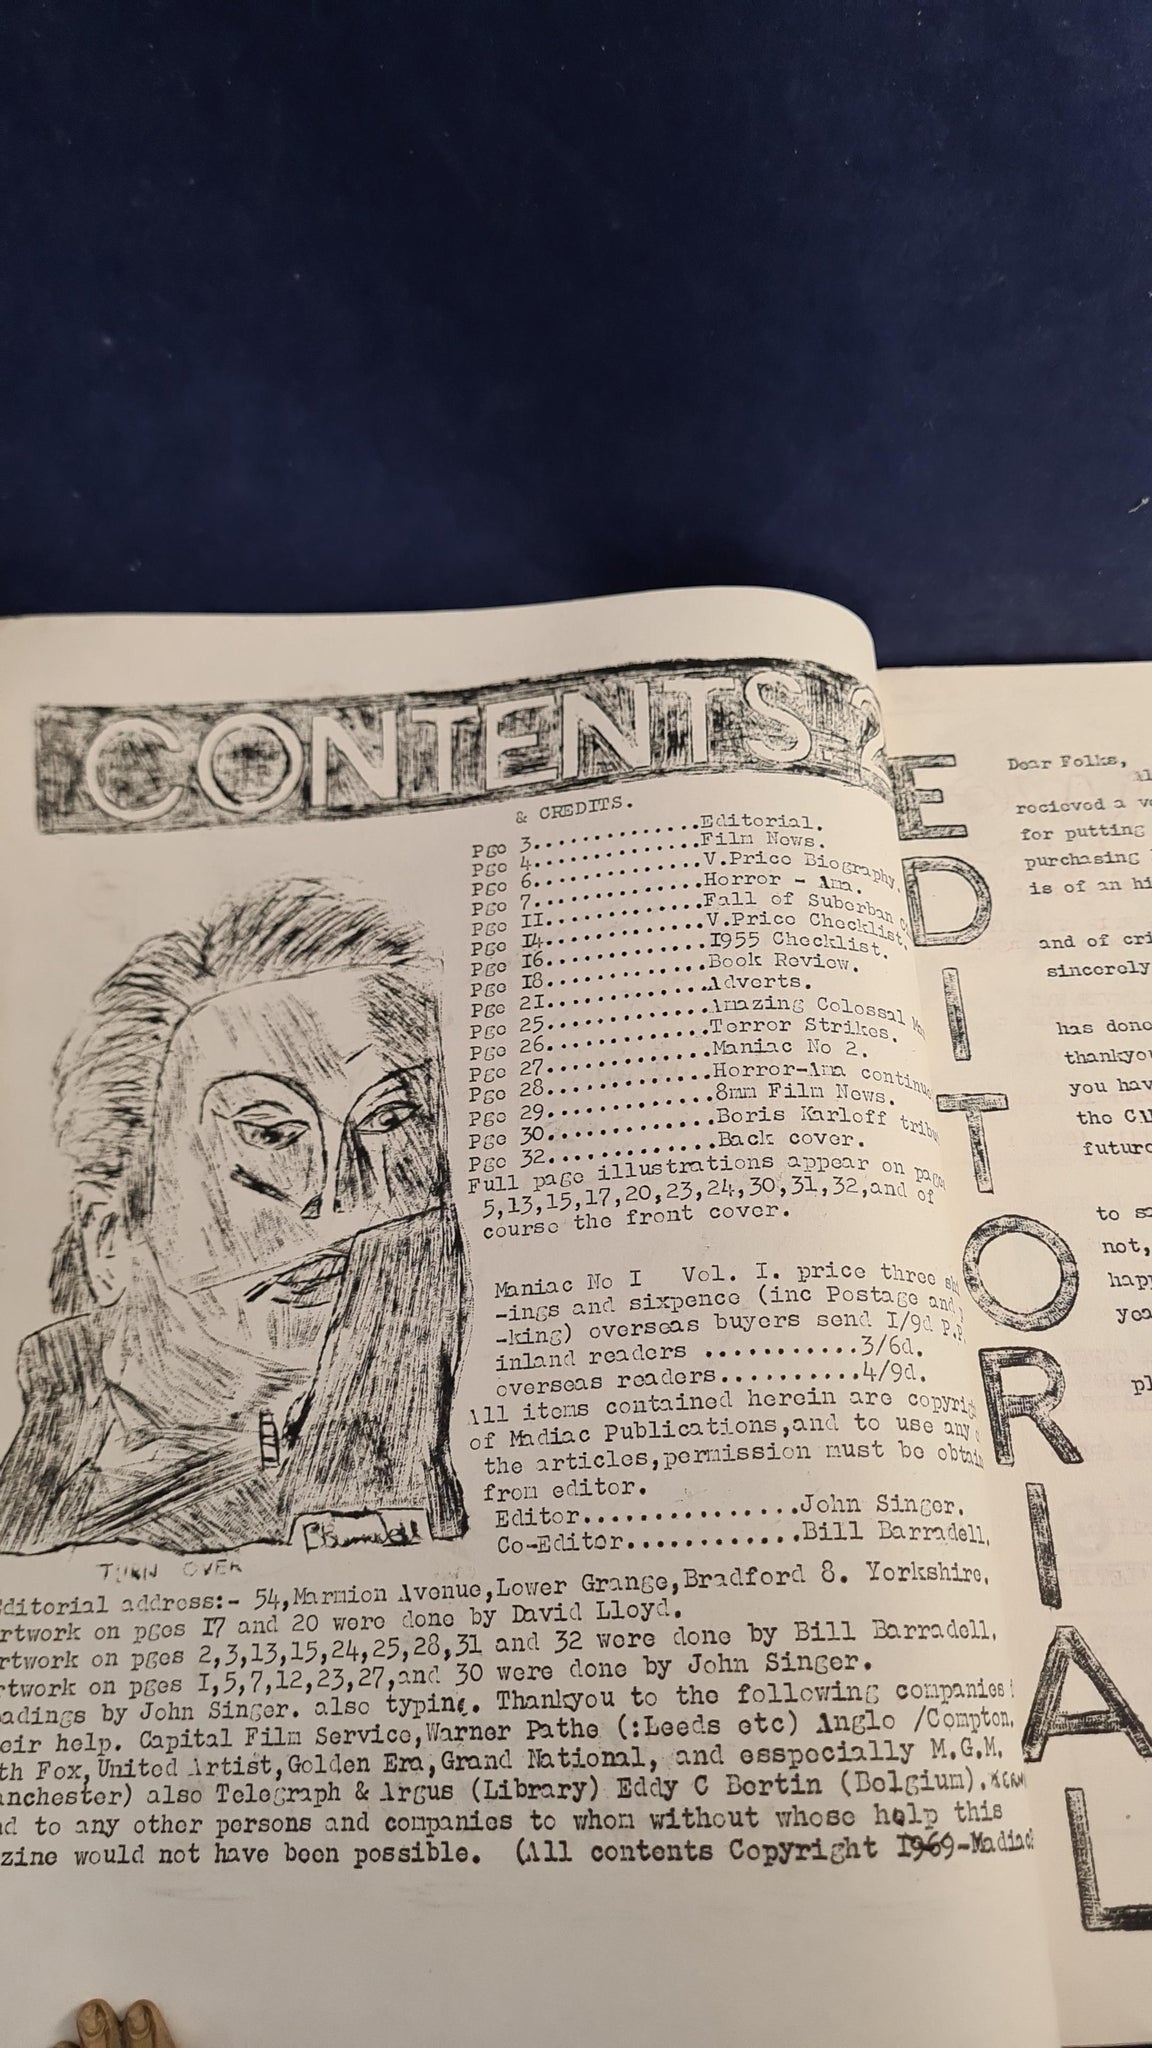 CONTENTS 2
& CREDITS.
Pge 3.............Editorial.
Pge 4.............Film News.
Pge 6.............V.Price Biography.
Pge 7.............Horror - Ama.
Pge II.............Fall of Suberban
Pge I4.............V.Price Checklist.
Pge I6.............I955 Checklist.
Pge I8.............Book Review.
Pge 2I.............Adverts.
Pge 25.............Amazing Colossal
Pge 26.............Terror Strikes.
Pge 27.............Maniac No 2.
Pge 28.............Horror-Ama continue
Pge 29.............8mm Film News.
Pge 30.............Boris Karloff
Pge 32.............Back cover.
Full page illustrations appear on
5,13,15,17,20,23,24,30,31,32,and of
course the front cover.
Maniac No I Vol. I. price three
-ings and sixpence (inc Postage and
-king) overseas buyers send I/9d P.P
inland readers ...........3/6d.
overseas readers..........4/9d.
All items contained herein are
of Madiac Publications,and to use any
the articles,permission must be
from editor.
Editor...............John Singer.
Co-Editor............Bill Barradell.
TURN OVER
ditorial address:- 54,Marmion Avenue,Lower Grange,Bradford 8. Yorkshire.
rtwork on pges I7 and 20 were done by David Lloyd.
rtwork on pges 2,3,13,15,24,25,28,31 and 32 were done by Bill Barradell.
rtwork on pges I,5,7,12,23,27,and 30 were done by John Singer.
adings by John Singer. also typing. Thankyou to the following companies
eir help. Capital Film Service,Warner Pathe (:Leeds etc) Anglo /Compton.
th Fox,United Artist,Golden Era,Grand National, and esspecially M.G.M.
anchester) also Telegraph & Argus (Library) Eddy C Bertin (Belgium).
nd to any other persons and companies to whom without whose help this
zine would not have been possible. (All contents Copyright I969-Madiac
EDITORIAL
Dear Folks,
Al
recieved a
for putting
purchasing
is of an hi
and of cri
sincerely
has done
thankyou
you hav
the
future
to
not,
happ
yea
pl